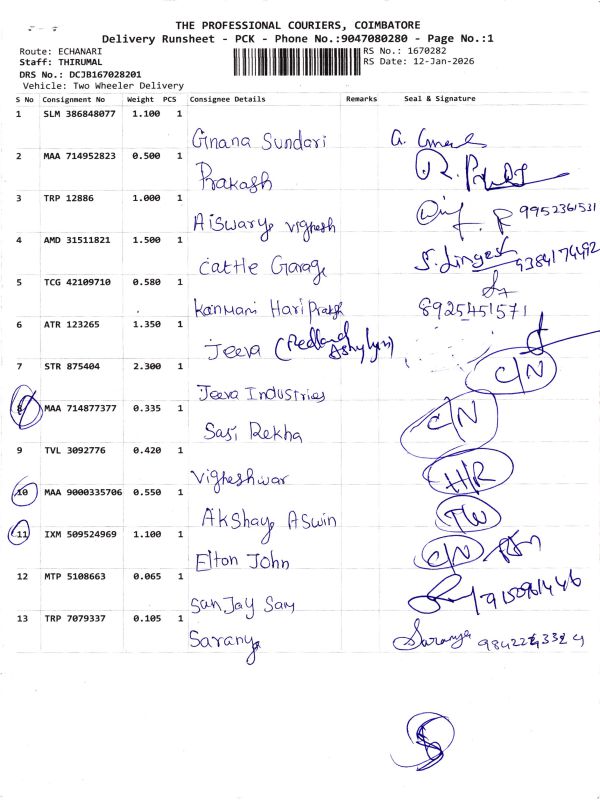 THE PROFESSIONAL COURIERS, COIMBATORE
Delivery Runsheet - PCK - Phone No.:9047080280 - Page No.:1
Route: ECHANARI RS No.: 1670282
Staff: THIRUMAL RS Date: 12-Jan-2026
DRS No.: DCJB167028201
Vehicle: Two Wheeler Delivery
S No Consignment No Weight PCS Consignee Details Remarks Seal & Signature
1 SLM 386848077 1.100 1
Gnana Sundari
2 MAA 714952823 0.500 1
Prakash
3 TRP 12886 1.000 1
Aiswarya Vighesh 9952361531
4 AMD 31511821 1.500 1
Cattle Garage S. Lingesh 9384174492
5 TCG 42109710 0.580 1
Kanmani Hari Prakash 8925451571
6 ATR 123265 1.350 1
Jeeva
7 STR 875404 2.300 1 C/N
Jeeva Industries
8 MAA 714877377 0.335 1 C/N
Sasi Rekha
9 TVL 3092776 0.420 1
Vigheshwar H/R
10 MAA 9000335706 0.550 1
Akshay Aswin TW
11 IXM 509524969 1.100 1
Elton John C/N
12 MTP 5108663 0.065 1
Sanjay Sam
13 TRP 7079337 0.105 1
Saranya Saranya